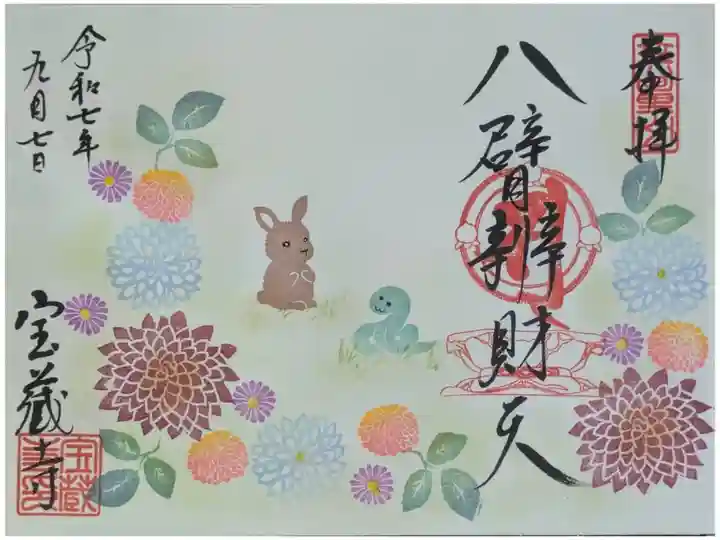 奉拝
八臂辨財天
令和七年
九月七日
宝蔵寺